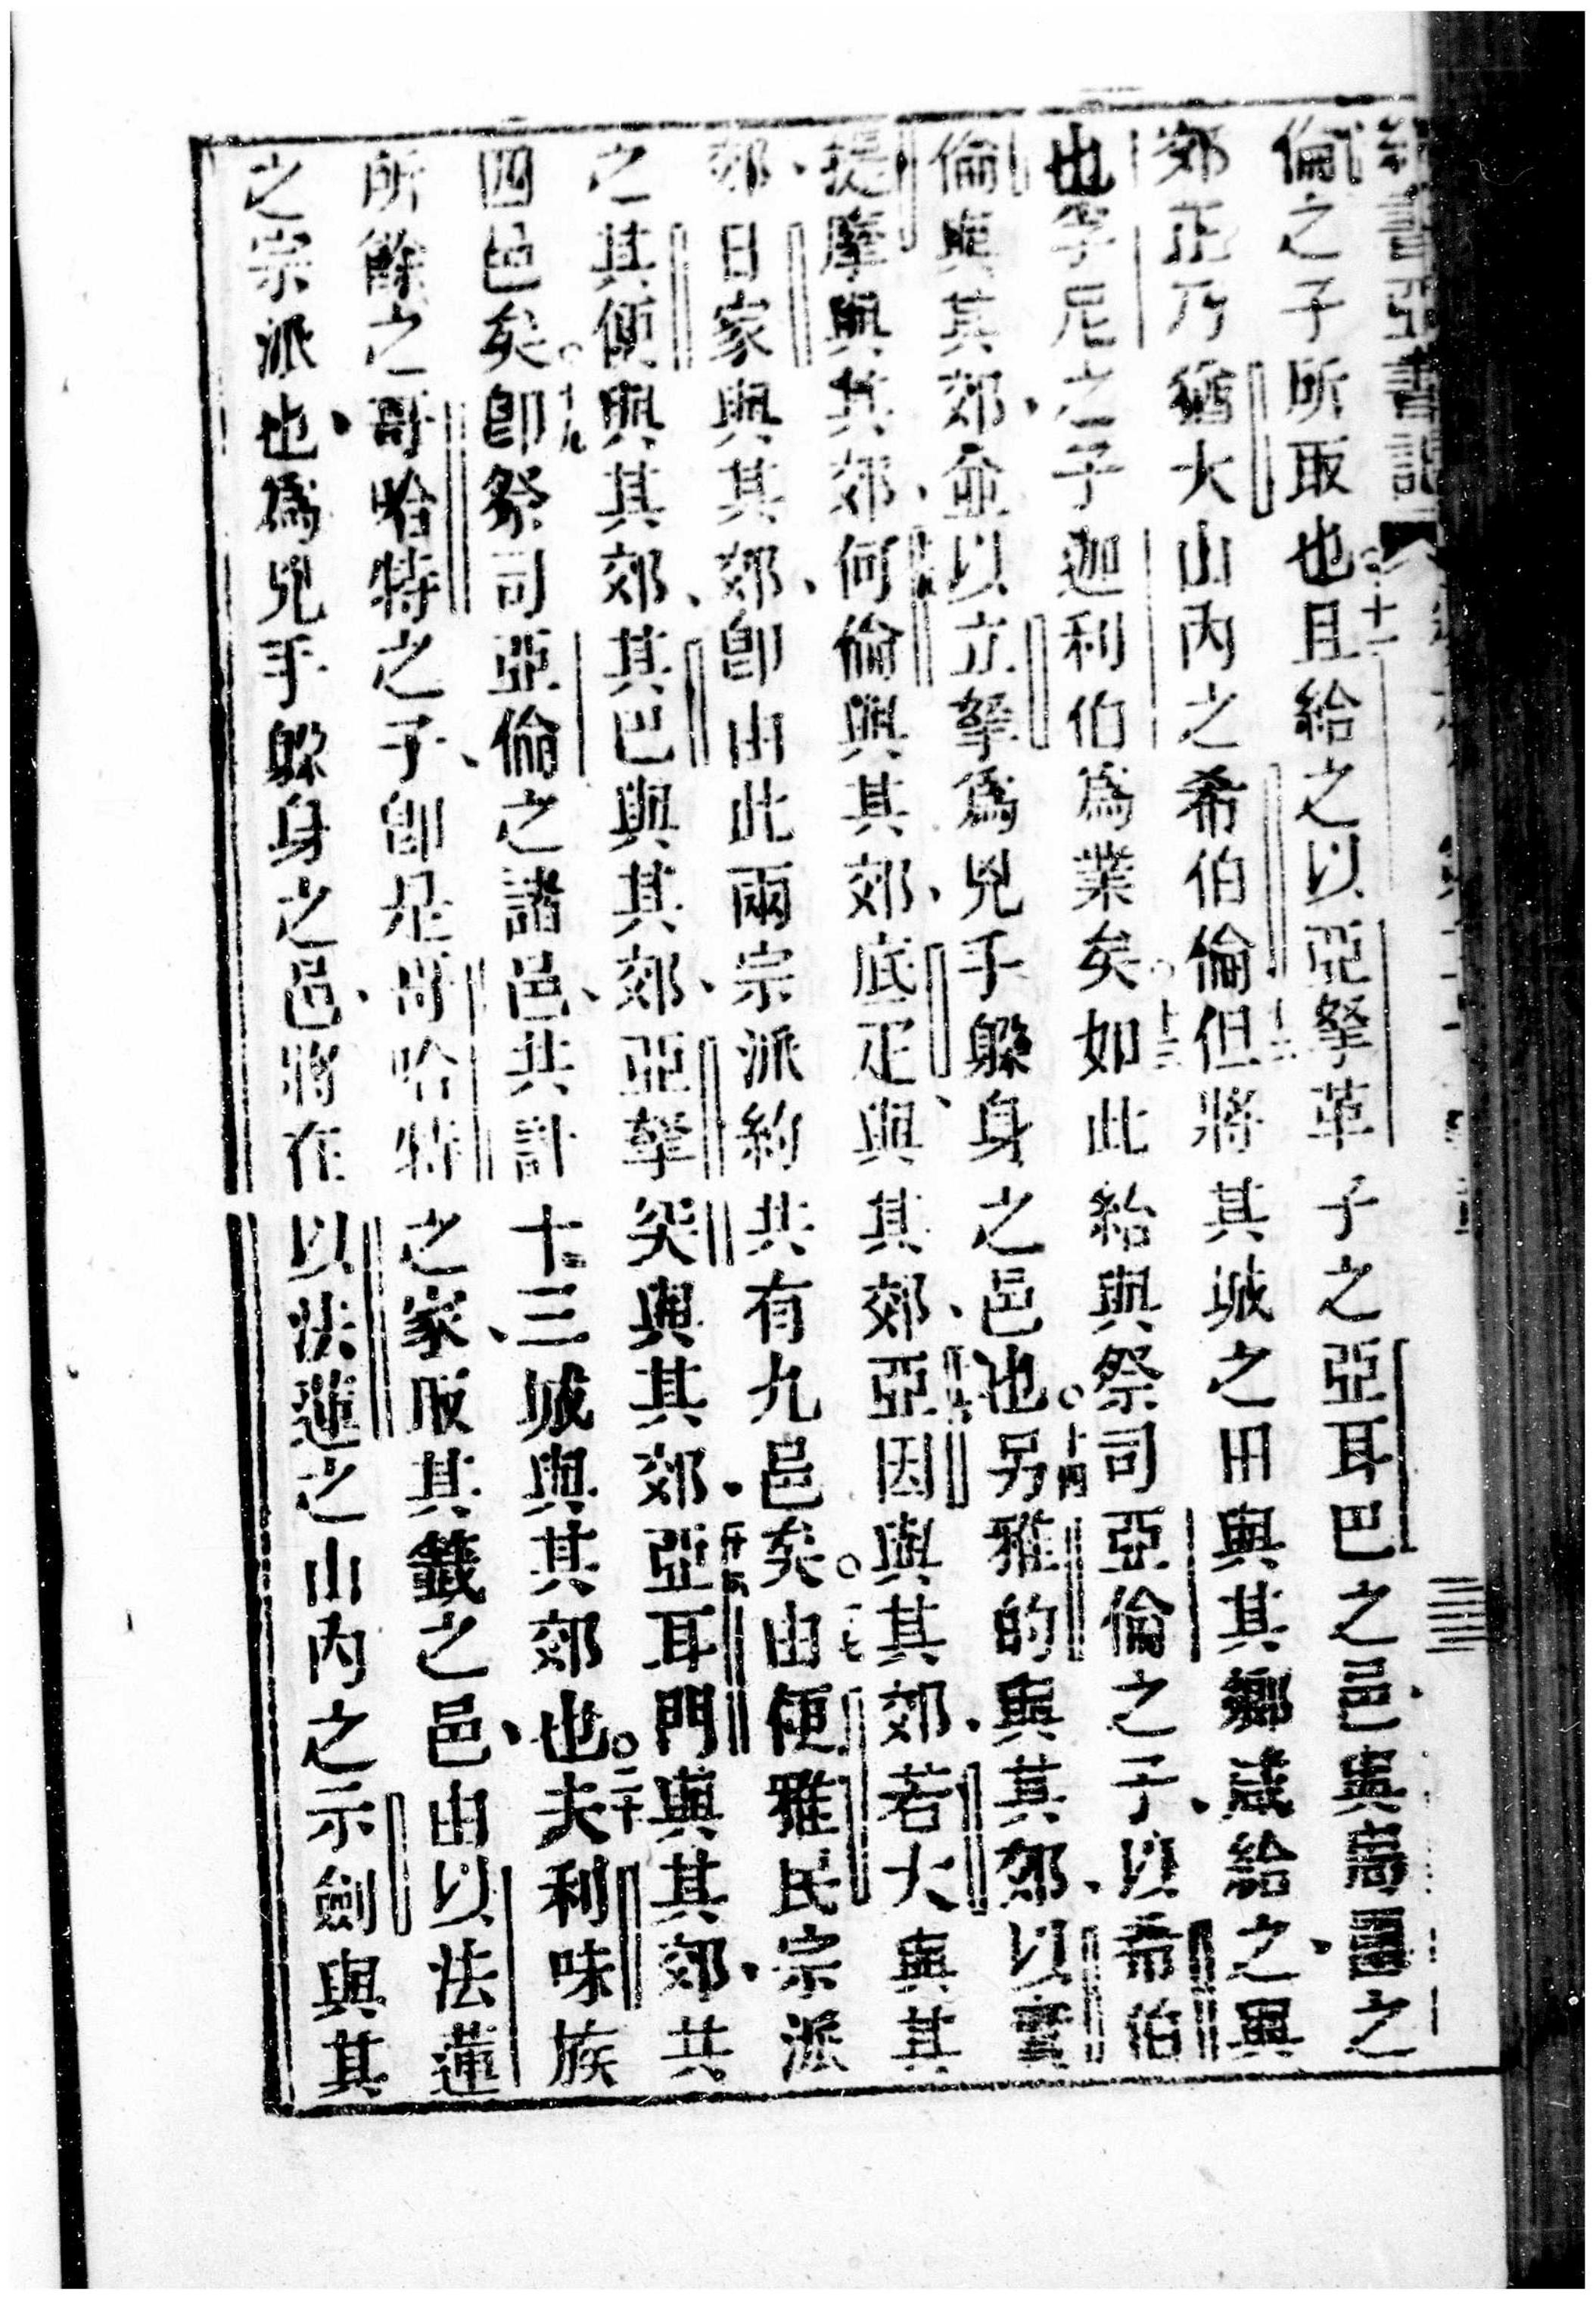 倫之子所取也十一且給之以亞拏革子之亞耳巴之邑與之
郊正乃猶大山內之希伯倫十二但將其城之田與其鄉歲給之與
也孚尼之子迦利伯爲業矣。十三如此給與祭司亞倫之子、以希伯
倫與其郊、並以立拏爲兇手躱身之邑也。十四另雅的與其郊、以
提摩與其郊、何倫與其郊、底疋與其郊、亞因與其郊、若大與其
郊、日家與其郊、即由此兩宗派約共有九邑矣。十七由便雅民宗派
之其便與其郊、其巴與其郊、亞拏突與其郊、亞耳門與其郊、共
四邑矣。十九即祭司亞倫之諸邑、共計十三城與其郊也。二十夫利味族
所餘之哥哈特之子、即是哥哈特之家、取其籤之邑、由以法蓮
之宗派也、爲兇手躱身之邑、將在以法蓮之山內之示劍與其